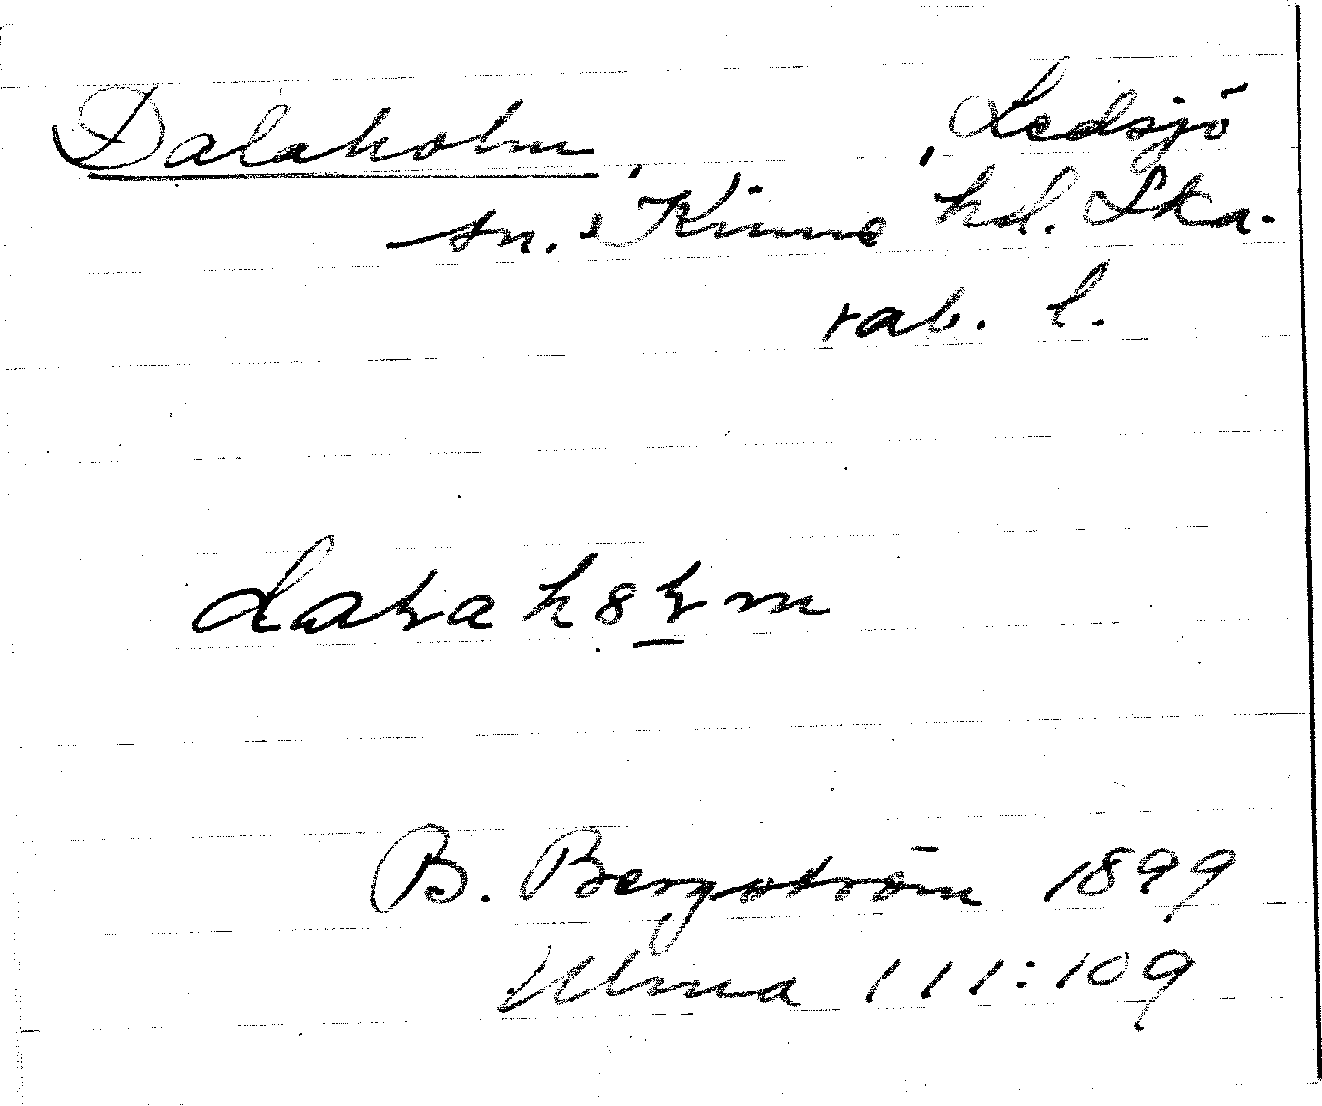 Dalaholm, , Ledsjö
sn. Kinne hd. Ska-
rab. l.
B. Bergström 1899
Ulma 111:109